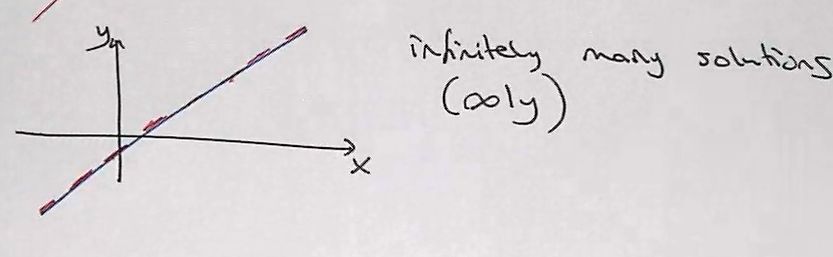 y
infinitely many solutions
(∞ly)
x